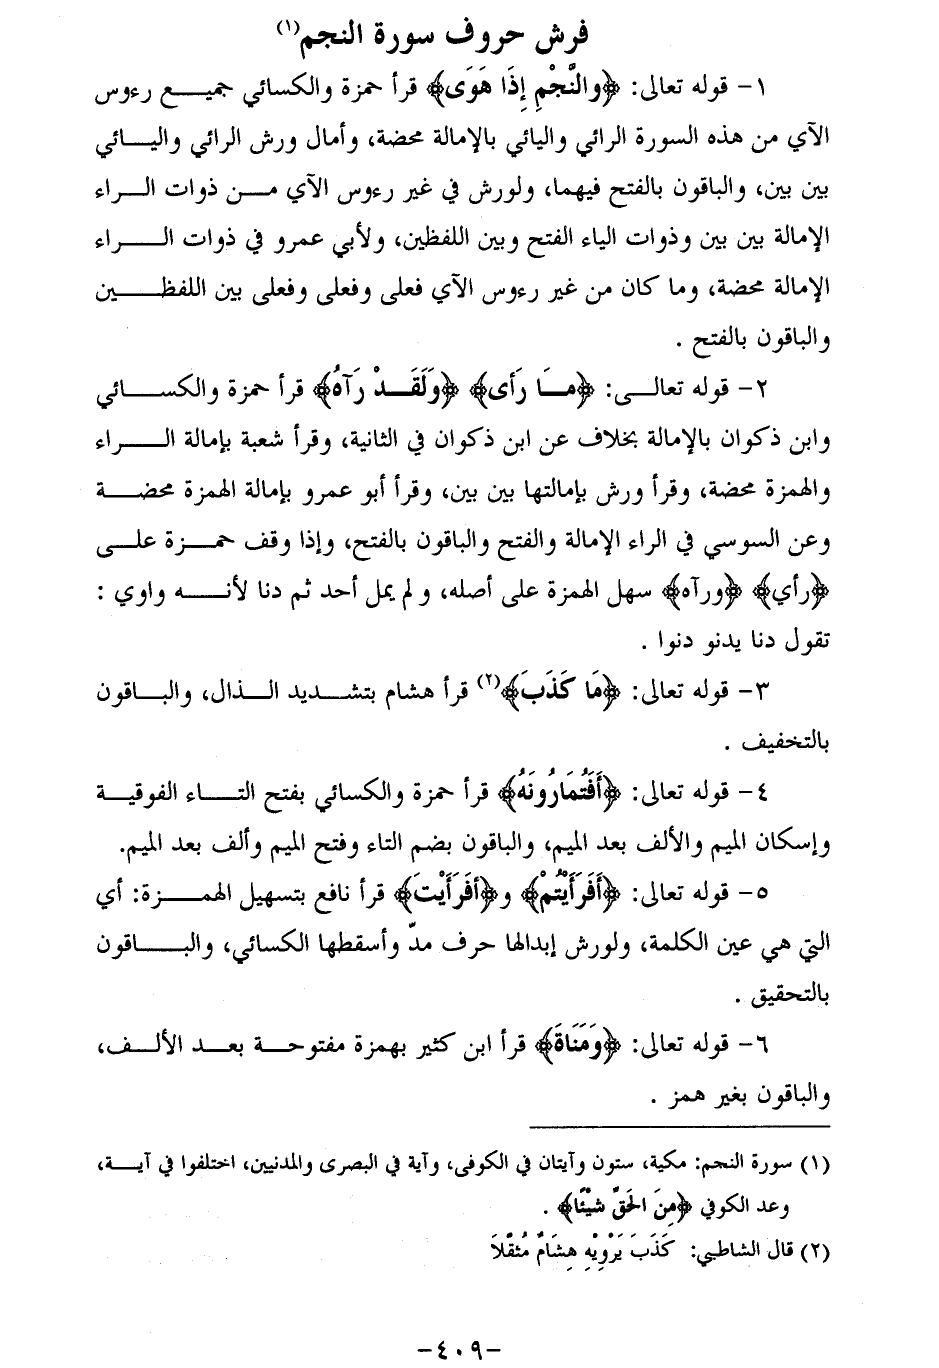 فرش حروف سورة النجم(١)
١- قوله تعالى: ﴿والنَّجْمِ إِذَا هَوَى﴾ قرأ حمزة والكسائي جميع رءوس
الآي من هذه السورة الرائي واليائي بالإمالة محضة، وأمال ورش الرائي واليائي
بين بين، والباقون بالفتح فيهما، ولورش في غير رءوس الآي من ذوات الراء
الإمالة بين بين وذوات الياء الفتح وبين اللفظين، ولأبي عمرو في ذوات الراء
الإمالة محضة، وما كان من غير رءوس الآي فعلى وفعلى وفعلى بين اللفظين
والباقون بالفتح .
٢- قوله تعالى: ﴿مَا رَأى﴾ ﴿وَلَقَدْ رَآهُ﴾ قرأ حمزة والكسائي
وابن ذكوان بالإمالة بخلاف عن ابن ذكوان في الثانية، وقرأ شعبة بإمالة الراء
والهمزة محضة، وقرأ ورش بإمالتها بين بين، وقرأ أبو عمرو بإمالة الهمزة محضة
وعن السوسي في الراء الإمالة والفتح والباقون بالفتح، وإذا وقف حمزة على
﴿رأي﴾ ﴿ورآه﴾ سهل الهمزة على أصله، ولم يمل أحد ثم دنا لأنه واوي :
تقول دنا يدنو دنوا .
٣- قوله تعالى: ﴿مَا كَذَبَ﴾(٢) قرأ هشام بتشديد الذال، والباقون
بالتخفيف .
٤- قوله تعالى: ﴿أَفَتُمَارُونَهُ﴾ قرأ حمزة والكسائي بفتح التاء الفوقية
وإسكان الميم والألف بعد الميم، والباقون بضم التاء وفتح الميم وألف بعد الميم.
٥- قوله تعالى: ﴿أَفَرَأَيْتُمْ﴾ و﴿أَفَرَأَيْتَ﴾ قرأ نافع بتسهيل الهمزة: أي
التي هي عين الكلمة، ولورش إبدالها حرف مدّ وأسقطها الكسائي، والباقون
بالتحقيق .
٦- قوله تعالى: ﴿وَمَنَاةَ﴾ قرأ ابن كثير بهمزة مفتوحة بعد الألف،
والباقون بغير همز .
(١) سورة النجم: مكية، ستون وآيتان في الكوفى، وآية في البصرى والمدنيين، اختلفوا في آية،
وعد الكوفي ﴿مِنَ الحَقِّ شَيْئًا﴾ .
(٢) قال الشاطبي: كَذَبَ يَرْوِيْهِ هِشَامٌ مُثقَّلاَ
-٤٠٩-